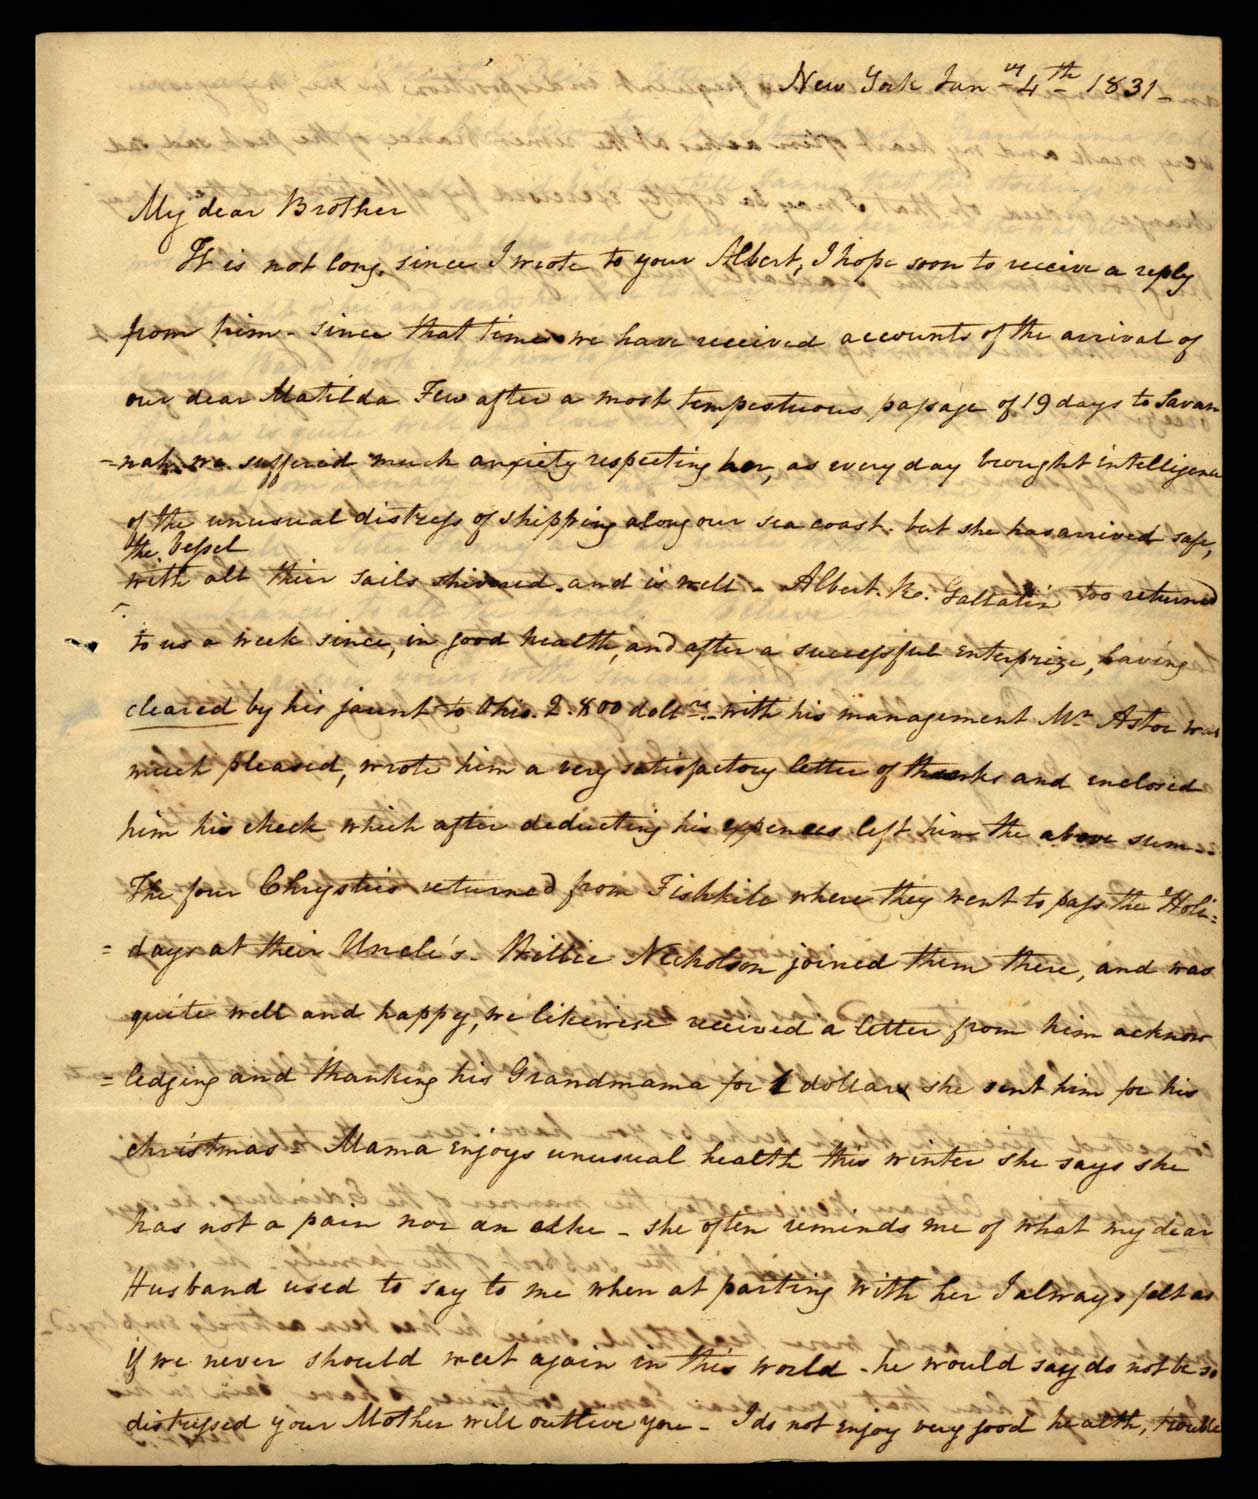 New York Jan ry 4th 1831 -
My dear Brother
It is not long, since I wrote to your Albert, I hope soon to receive a reply
from him - since that time we have received accounts of the arrival of
our dear Matilda Few after a most tempestuous passage of 19 days to Savan
=nah. we suffered much anxiety respecting her, as every day brought intelligence
of the unusual distress of shipping along our sea coast. but she has arrived safe,
the vessel
with all their sails shivered. and is well - Albert. R. Gallatin too returned
to us a week since, in good health, and after a successful enterprize, having
cleared by his jaunt to Ohio. 2.800 doll rs. - with his management Mr Astor was
much pleased, wrote him a very satisfactory letter of thanks and enclosed
him his check which after deducting his expences left him the above sum -.
The four Chrysties returned from Fishkile where they went to pass the Holi=
= days at their Uncle's. Hillie Nicholson joined them there, and was
quite well and happy, we likewise received a letter from him acknow
= ledging and thanking his Grandmama for 1 dollar she sent him for his
christmas - Mama enjoys unusual health this winter she says she
has not a pain nor an ache - she often reminds me of what my dear
Husband used to say to me when at parting with her I always felt as
if we never should meet again in this world - he would say do not be so
distressed your Mother will outlive you - I do not enjoy very good health, trouble